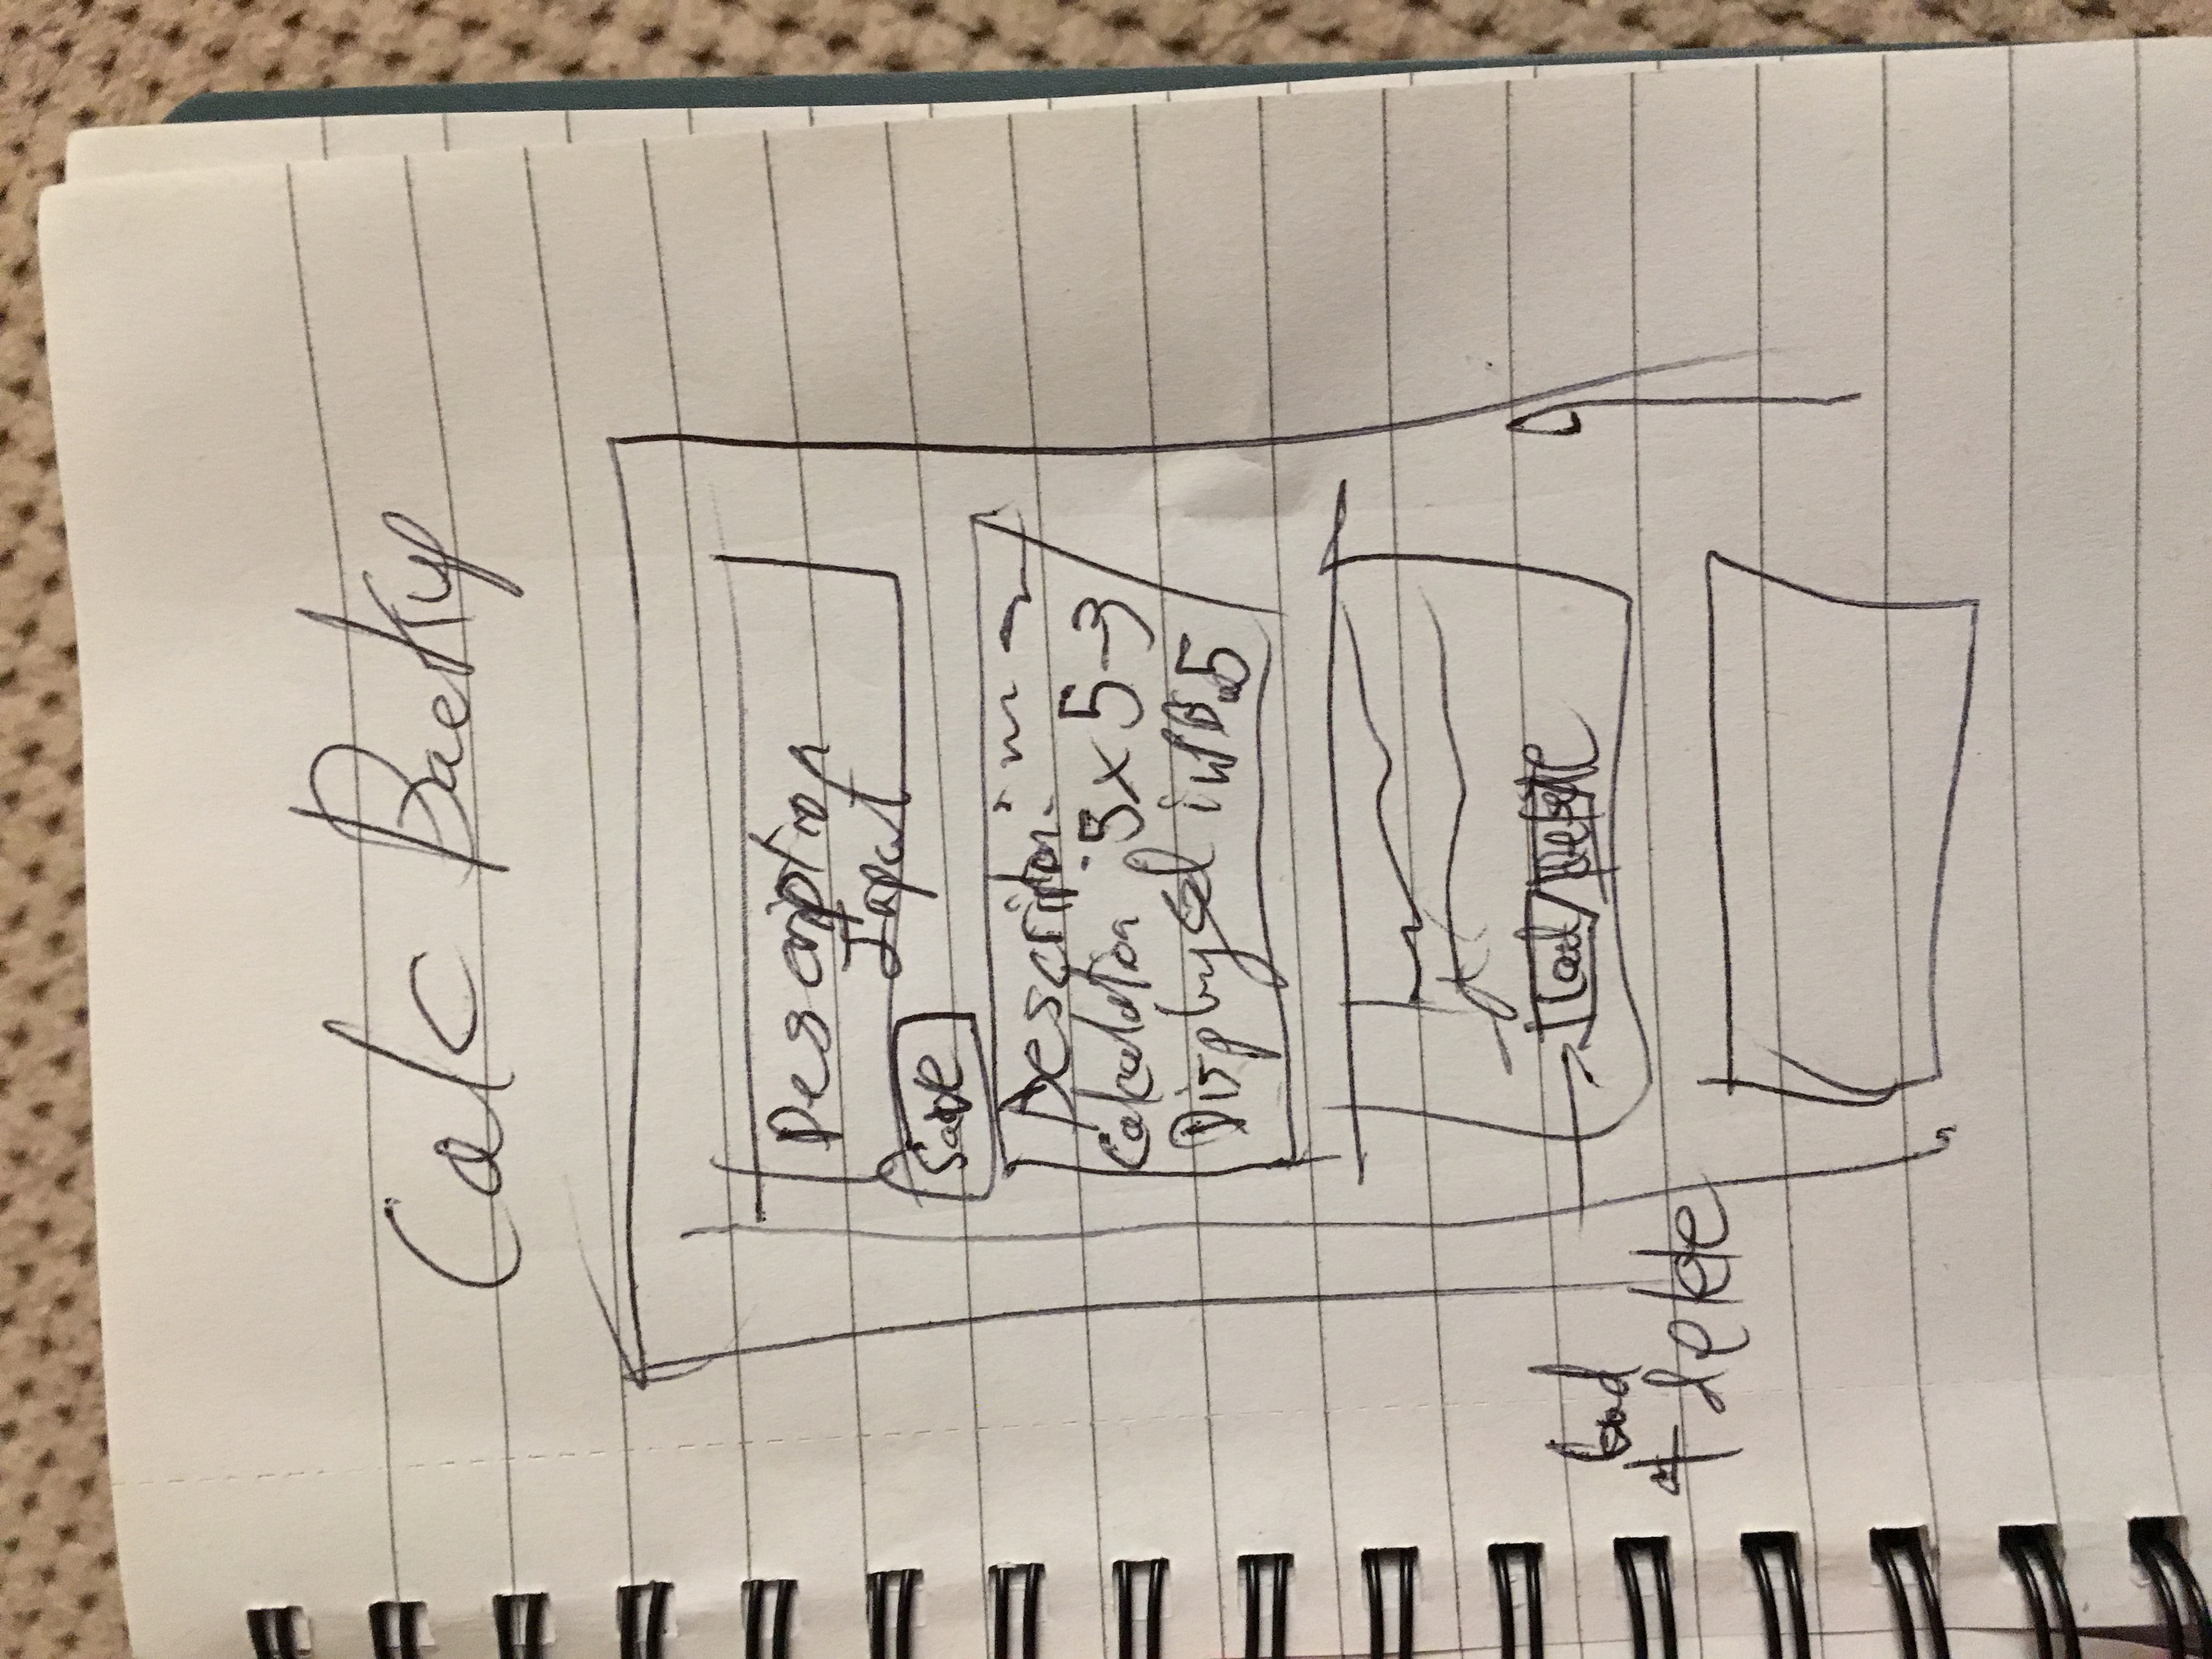 Calc Backup
Description
Input
Save
Description:
Calculation: 5x5-3
Displayed in
load/Delete
load
+ delete